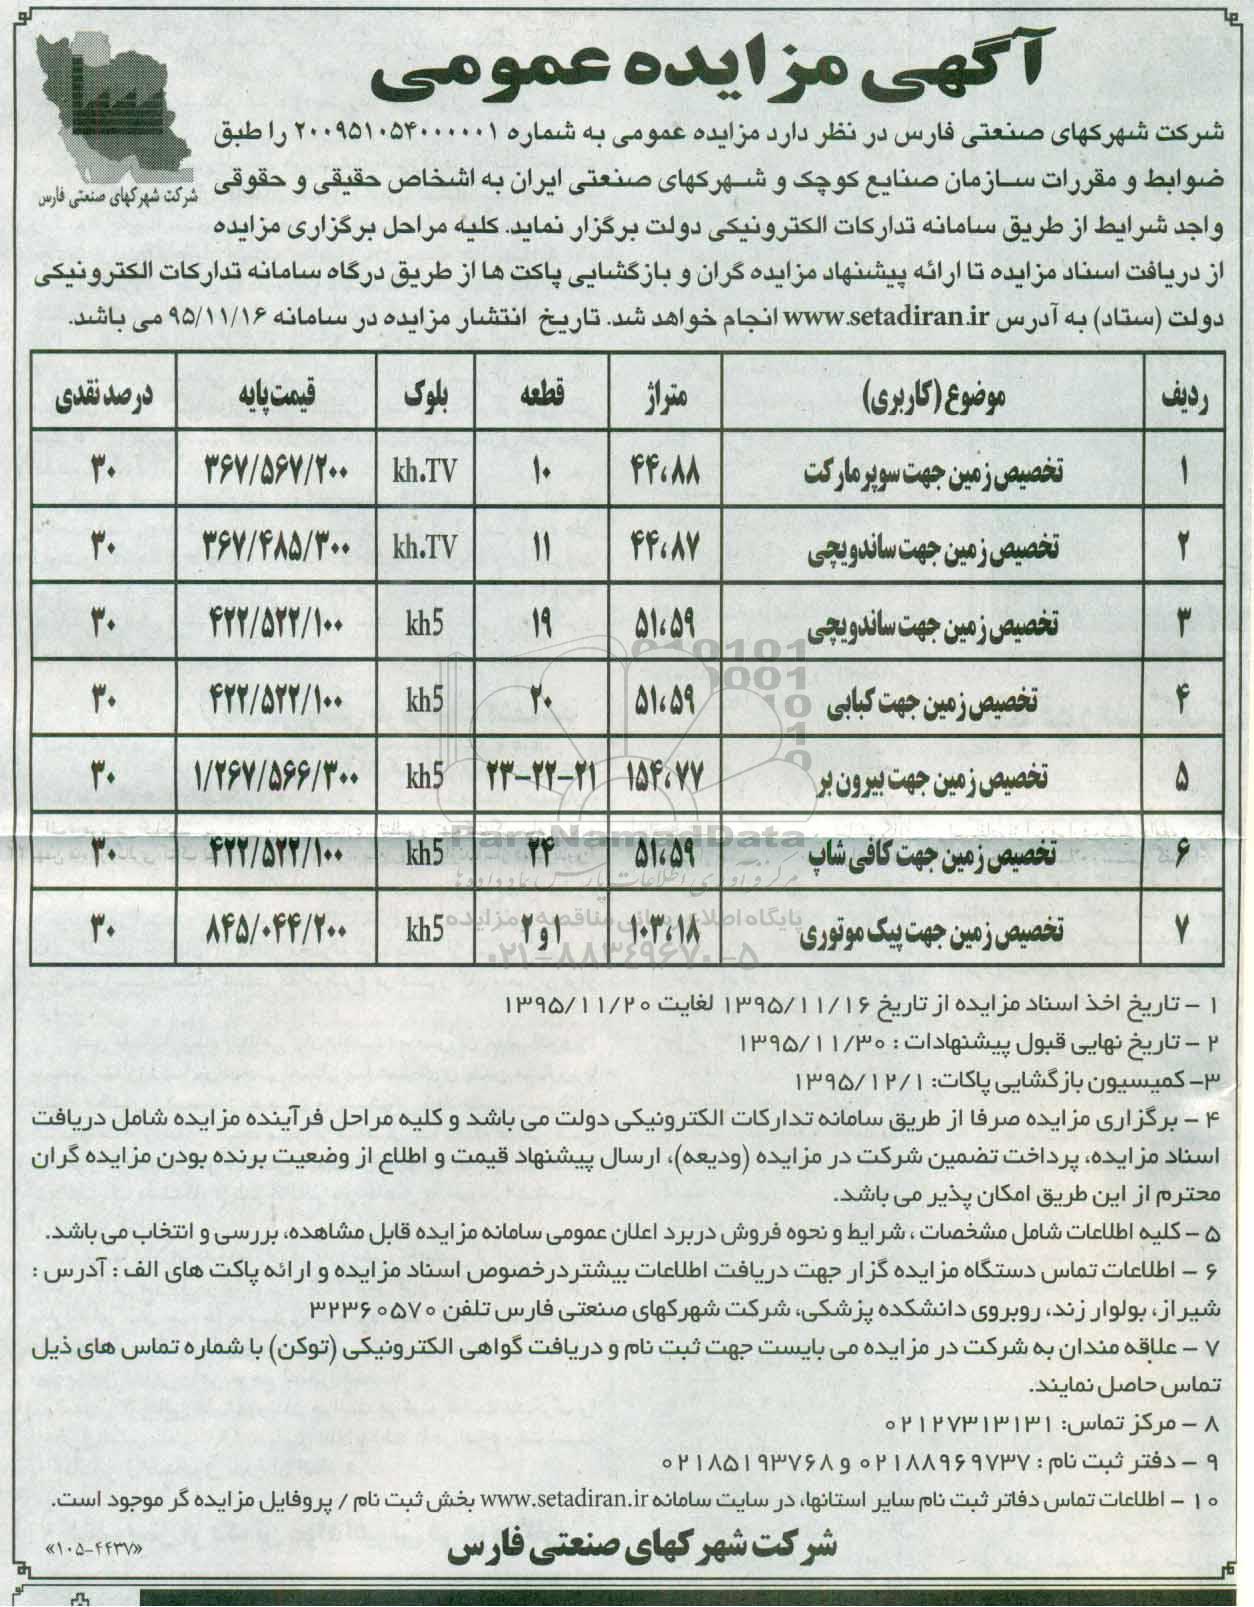 آگهی مزایده عمومی
شرکت شهرکهای صنعتی فارس
شرکت شهرکهای صنعتی فارس در نظر دارد مزایده عمومی به شماره ۲۰۰۹۵۱۰۵۴۰۰۰۰۰۱ را طبق
ضوابط و مقررات سازمان صنایع کوچک و شهرکهای صنعتی ایران به اشخاص حقیقی و حقوقی
واجد شرایط از طریق سامانه تدارکات الکترونیکی دولت برگزار نماید. کلیه مراحل برگزاری مزایده
از دریافت اسناد مزایده تا ارائه پیشنهاد مزایده گران و بازگشایی پاکت ها از طریق درگاه سامانه تدارکات الکترونیکی
دولت (ستاد) به آدرس www.setadiran.ir انجام خواهد شد. تاریخ انتشار مزایده در سامانه ۹۵/۱۱/۱۶ می باشد.
ردیف موضوع (کاربری) متراژ قطعه بلوک قیمت پایه درصد نقدی
۱ تخصیص زمین جهت سوپر مارکت ۴۴،۸۸ ۱۰ kh.TV ۳۶۷/۵۶۷/۲۰۰ ۳۰
۲ تخصیص زمین جهت ساندویچی ۴۴،۸۷ ۱۱ kh.TV ۳۶۷/۴۸۵/۳۰۰ ۳۰
۳ تخصیص زمین جهت ساندویچی ۵۱،۵۹ ۱۹ kh5 ۴۲۲/۵۲۲/۱۰۰ ۳۰
۴ تخصیص زمین جهت کبابی ۵۱،۵۹ ۲۰ kh5 ۴۲۲/۵۲۲/۱۰۰ ۳۰
۵ تخصیص زمین جهت بیرون بر ۱۵۴،۷۷ ۲۱-۲۲-۲۳ kh5 ۱/۲۶۷/۵۶۶/۳۰۰ ۳۰
۶ تخصیص زمین جهت کافی شاپ ۵۱،۵۹ ۲۴ kh5 ۴۲۲/۵۲۲/۱۰۰ ۳۰
۷ تخصیص زمین جهت پیک موتوری ۱۰۳،۱۸ ۱ و ۲ kh5 ۸۴۵/۰۴۴/۲۰۰ ۳۰
ParsNamadData
مرکز فرآوری اطلاعات پارس نماد دادهها
پایگاه اطلاع رسانی مناقصه و مزایده
۰۲۱-۸۸۳۴۹۶۷۰-۵
۱ - تاریخ اخذ اسناد مزایده از تاریخ ۱۳۹۵/۱۱/۱۶ لغایت ۱۳۹۵/۱۱/۲۰
۲ - تاریخ نهایی قبول پیشنهادات : ۱۳۹۵/۱۱/۳۰
۳- کمیسیون بازگشایی پاکات: ۱۳۹۵/۱۲/۱
۴ - برگزاری مزایده صرفا از طریق سامانه تدارکات الکترونیکی دولت می باشد و کلیه مراحل فرآینده مزایده شامل دریافت
اسناد مزایده، پرداخت تضمین شرکت در مزایده (ودیعه)، ارسال پیشنهاد قیمت و اطلاع از وضعیت برنده بودن مزایده گران
محترم از این طریق امکان پذیر می باشد.
۵ - کلیه اطلاعات شامل مشخصات ، شرایط و نحوه فروش دربرد اعلان عمومی سامانه مزایده قابل مشاهده، بررسی و انتخاب می باشد.
۶ - اطلاعات تماس دستگاه مزایده گزار جهت دریافت اطلاعات بیشتردرخصوص اسناد مزایده و ارائه پاکت های الف : آدرس :
شیراز، بولوار زند، روبروی دانشکده پزشکی، شرکت شهرکهای صنعتی فارس تلفن ۳۲۳۶۰۵۷۰
۷ - علاقه مندان به شرکت در مزایده می بایست جهت ثبت نام و دریافت گواهی الکترونیکی (توکن) با شماره تماس های ذیل
تماس حاصل نمایند.
۸ - مرکز تماس: ۰۲۱۲۷۳۱۳۱۳۱
۹ - دفتر ثبت نام : ۰۲۱۸۸۹۶۹۷۳۷ و ۰۲۱۸۵۱۹۳۷۶۸
۱۰ - اطلاعات تماس دفاتر ثبت نام سایر استانها، در سایت سامانه www.setadiran.ir بخش ثبت نام / پروفایل مزایده گر موجود است.
شرکت شهرکهای صنعتی فارس
«۱۰۵-۴۴۳۷»